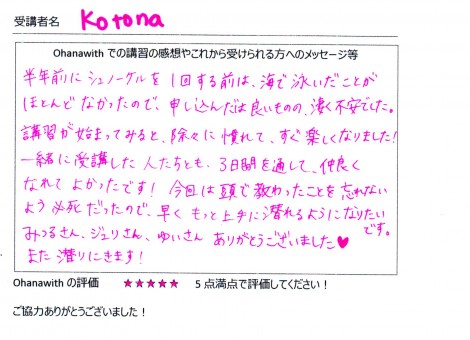 受講者名 Kotona
Ohanawith での講習の感想やこれから受けられる方へのメッセージ等
半年前にシュノーケルを1回する前は、海で泳いだことが
ほとんどなかったので、申し込んだは良いものの、凄く不安でした。
講習が始まってみると、除々に慣れて、すぐ楽しくなりました!
一緒に受講した人たちとも、3日間を通して、仲良く
なれてよかったです! 今回は頭で教わったことを忘れない
よう必死だったので、早くもっと上手に潜れるようになりたい
です。
みつるさん、ジュリさん、ゆいさん ありがとうございました♥
また潜りにきます!
Ohanawith の評価 ★★★★★ 5点満点で評価してください!
ご協力ありがとうございました!